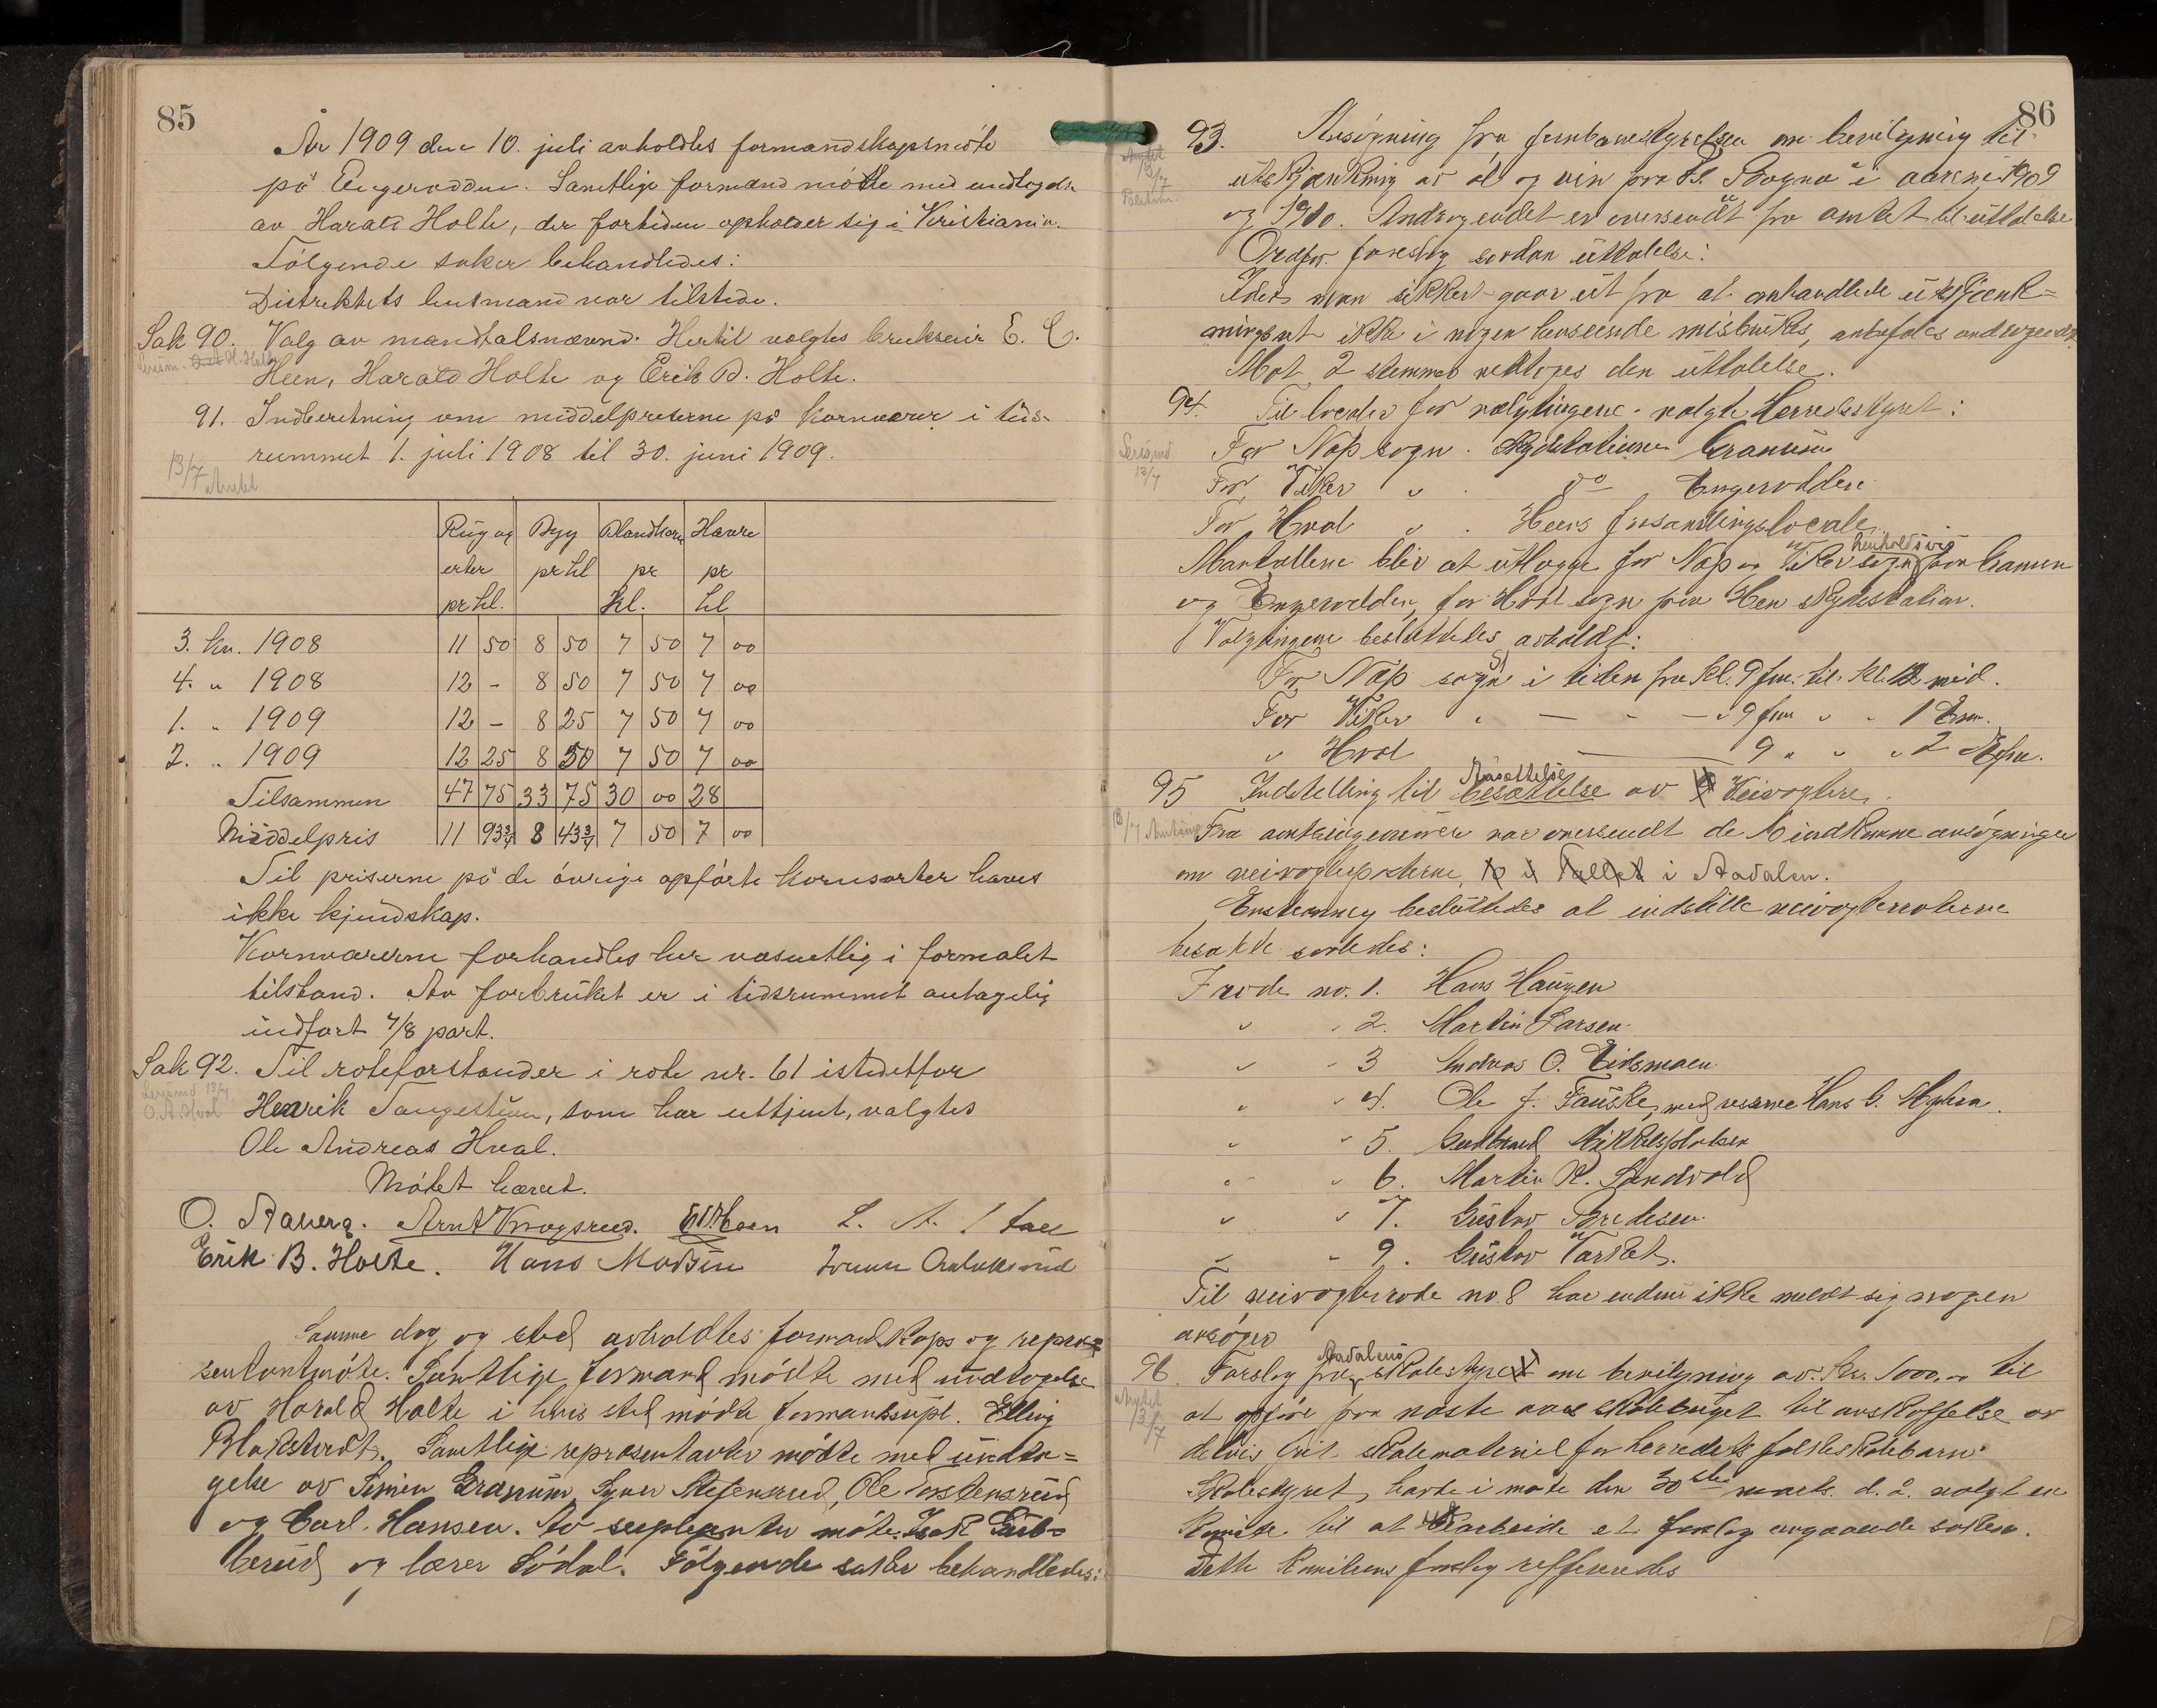 85
År 1909 den 10. juli avholdtes formandskapsmöte
på Engerodden. Samtlige formænd mötte med undtagelse
av Harald Holte, der fortiden opholder sig i Kristiania.
Følgende saker behandledes:
Distriktets lensmand var tilstede.
Sak 90. Valg av mandtalsnævnd. Hertil valgtes brukseier E. E.
Heen, Harald Holte og Erik B. Holte.
91. Indberetning om middelpriserne på kornvarer i tids-
rummet 1. juli 1908 til 30. juni 1909.
13/7 Amtet
Rug og Byg Blandkorn Havre
erter pr hl pr pr
pr hl. hl. hl
3. kv. 1908 11 50 8 50 7 50 7 00
4. " 1908 12 - 8 50 7 50 7 00
1. " 1909 12 - 8 25 7 50 7 00
2. " 1909 12 25 8 50 7 50 7 00
Tilsammen 47 75 33 75 30 00 28
Middelpris 11 93 3/4 8 43 3/4 7 50 7 00
Til priserne på de övrige opførte kornsorter haves
ikke kjendskap.
Kornvarerne forhandles her væsentlig i formalet
tilstand. Av forbruket er i tidsrummet antagelig
indført 7/8 part.
Sak 92. Til roteforstander i rote nr. 61 istedetfor
Henrik Tangestuen, som har uttjent, valgtes
Ole Andreas Hval.
Mötet hævet.
O. Aaberg. Arnt Krogsrud. E. E. Heen L. A.
Erik B. Holte. Hans Modsen
Samme dag og sted avholdtes formandskaps og repræ-
sentantmöte. Samtlige formænd mödte med undtagelse
av Harald Holte i hvis sted mödte formandssupl. Elling
Blakstvedt. Samtlige repræsentanter mödte med undta-
gelse av Simen Granum, Syver Stefensrud, Ole Torstensrud
og Carl Hansen. Av supleanter möte Isak Gul-
berud og lærer Södal. Følgende saker behandledes:
86
93. Ansøgning fra jernbanestyrelsen om bevilgning til
utskjænkning av öl og vin paa D/S. "Bægna" i aarene 1909
og 1910. Andragendet er oversendt fra amtet til uttalelse
Ordfør. foreslog saadan uttalelse:
Idet man sikkert gaar ut fra at omhandlede utskjænk-
ningsret ikke i nogen henseende misbrukes, anbefales andragendet
Mot 2 stemmer vedtoges den uttalelse.
94. Til lokaler for valgtingene valgte Herredsstyret:
For Næs sogn. Skydsstationen Granum
For Viker " . do Engerodden
For Hval " . Heens forsamlingslocale
Mantallene blir at utlægge for Næs og Viker sogn henholdsvis paa Granum
og Engerodden, for Hval sogn paa Hen Skydsstation.
Valgtingene besluttedes avholdt:
For Næs sogn i tiden fra kl. 9 fm. til kl. 12 mid.
For Viker " — " — " 9 fm " " 1 Em.
" Hval — 9 " " " 2
95 Indstilling til besættelse Ansættelse av Veivogtere.
Fra amtsingeniøren var oversendt de indkomne ansøgninger
om veivogterposterne, i Aadalen.
Enstemmig besluttedes at indstille veivogterroterne
besatte saaledes:
I rode no. 1. Hans Haugen
" " 2. Martin Larsen
" " 3 Andreas O. Eidsmoen
" " 4. Ole J. Fauske, med reserve Hans G. Myhra.
" " 5. Gudbrand Mikkelsplassen
" " 6. Martin K. Sandvold
" " 7. Gustav Bredesen
" " 9. Gustav
Til veivogterrode no. 8 har endnu ikke meldt sig nogen
ansøger
96. Forslag fra Aadalens skolestyre om bevilgning av Kr. 1000,- til
at opføre paa næste aars skolebudget til anskaffelse av
delvis frit skolemateriel for herredets folkeskolebarn.
Skolestyret havde i møte den 30te marts d. å. valgt en
Komite til at utarbeide et forslag angaaende saken.
Dette Komiteens forslag refferertes